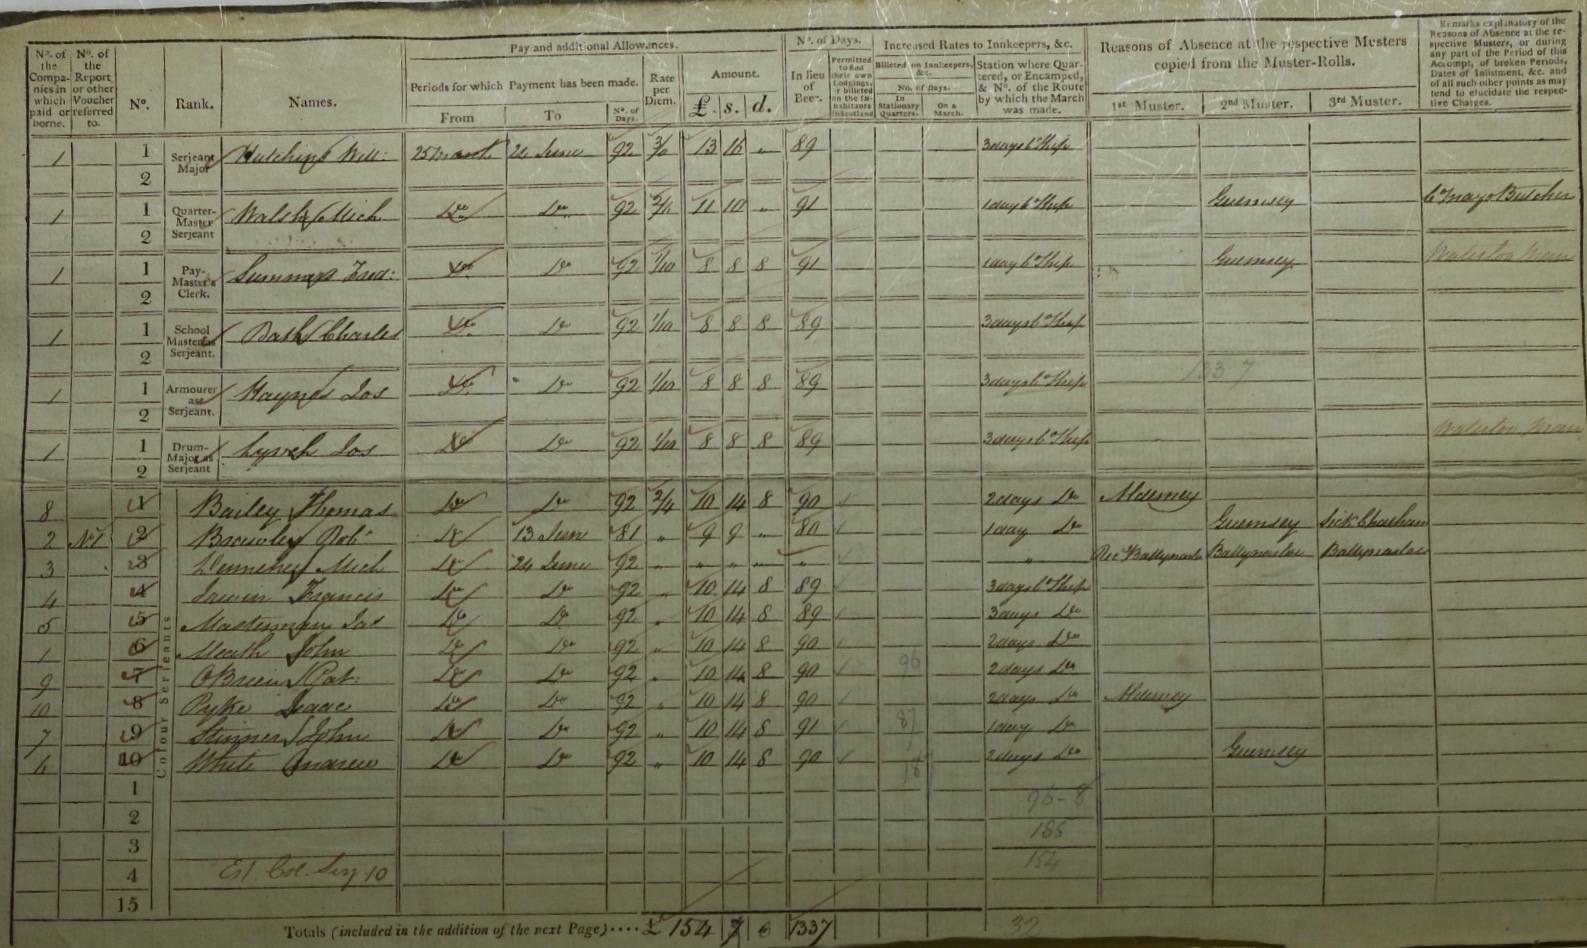 Nº. of the Companies in which paid or borne.
Nº. of the Report or other Voucher referred to.
Nº.
Rank.
Names.
Pay and additional Allowances.
Periods for which Payment has been made.
From
To
Nº. of Days.
Rate per Diem.
Amount.
£. s. d.
Nº. of Days.
In lieu of Beer.
Permitted to find their own Lodgings, or billeted on the Inhabitants in Scotland
Increased Rates to Innkeepers, &c.
Billeted on Innkeepers, &c.
No. of Days.
In Stationary Quarters.
On a March.
Station where Quartered, or Encamped, & Nº. of the Route by which the March was made.
Reasons of Absence at the respective Musters copied from the Muster-Rolls.
1st Muster.
2nd Muster.
3rd Muster.
Remarks explanatory of the Reasons of Absence at the respective Musters, or during any part of the Period of this Accompt, of broken Periods, Dates of Inlistment, &c. and of all such other points as may tend to elucidate the respective Charges.
1 1 Serjeant Major Hutchins Will: 25 March 24 June 92 3/0 13 16 „ 89 3 days bd Ship
2
1 1 Quarter-Master Serjeant Walsh Mich Do Do 92 2/6 11 10 „ 91 1 day bd Ship Guernsey
2
1 1 Pay-Master's Clerk. Summers Fred: Do Do 92 1/10 8 8 8 91 1 day bd Ship Guernsey
2
1 1 School Master as Serjeant. Bath Charles Do Do 92 1/10 8 8 8 89 3 days bd Ship
2
1 1 Armourer as Serjeant. Haynes Jos Do Do 92 1/10 8 8 8 89 3 days bd Ship
2
1337
1 1 Drum-Major as Serjeant Lynch Jos Do Do 92 1/10 8 8 8 89 3 days bd Ship
2
Colour Serjeants
8 1 Bailey Thomas Do Do 92 2/4 10 14 8 90 2 days Do Alderney
2 No 1 2 Do 13 June 81 „ 9 9 „ 80 1 day Do Guernsey Sick Chatham
3 3 Mich Do 24 June 92 „ „ „ „ „ „
4 4 Francis Do Do 92 „ 10 14 8 89 3 days bd Ship
5 5 Masterman Jas Do Do 92 „ 10 14 8 89 3 days Do
1 6 Meath John Do Do 92 „ 10 14 8 90 2 days Do
9 7 O'Brien Pat: Do Do 92 „ 10 14 8 90 96 2 days Do
10 8 Pyke Isaac Do Do 92 „ 10 14 8 90 2 days Do Alderney
7 9 Skinner John Do Do 92 „ 10 14 8 91 87 1 day Do
6 10 White Andrew Do Do 92 „ 10 14 8 90 2 days Do Guernsey
1
96-8
2
185
3
154
4 Est. Col. Serj 10
15
Totals (included in the addition of the next Page) .... £ 154 7 6 1337
32